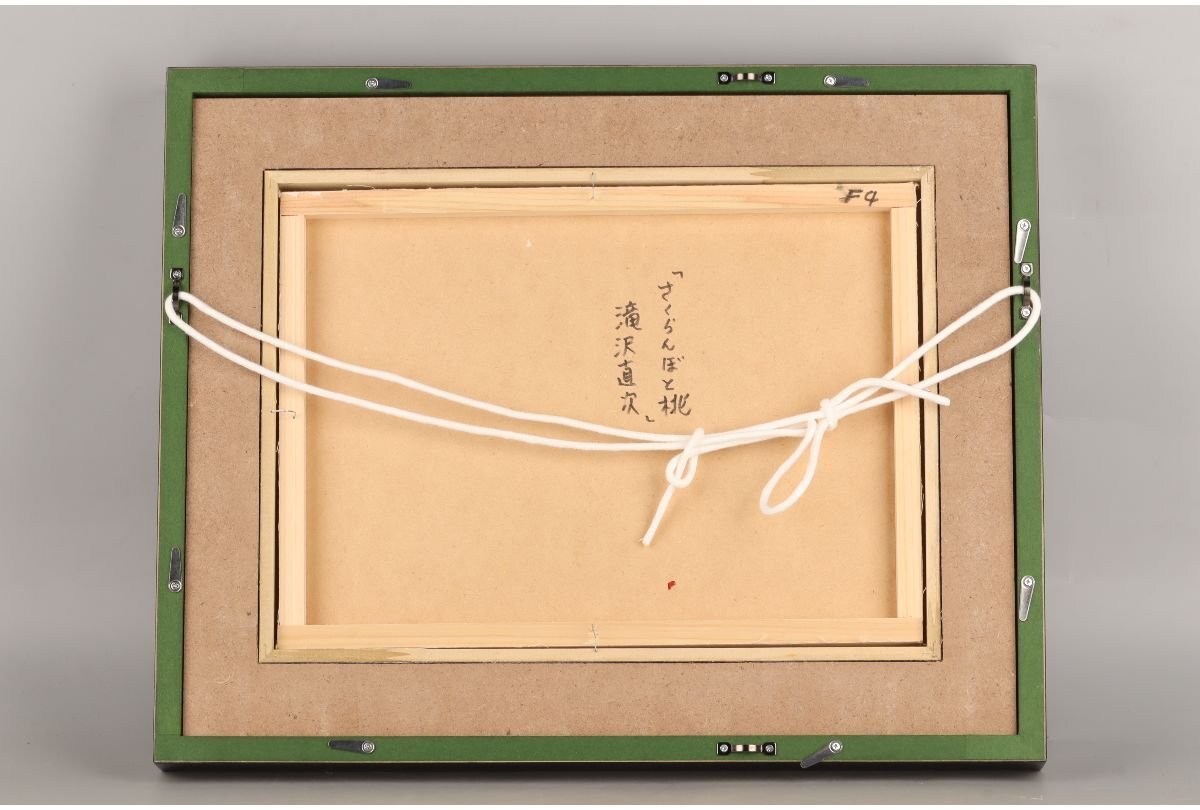 F4
「さくらんぼと桃
滝沢直次」